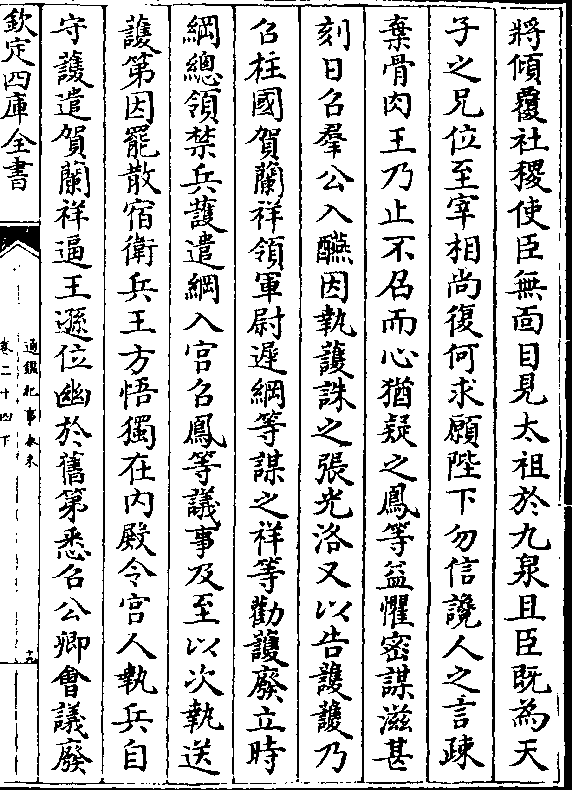 將傾覆社稷使臣無面目見太祖於九泉且臣既為天
子之兄位至宰相尚復何求願陛下勿信讒人之言疎
棄骨肉王乃止不召而心猶疑之鳳等益懼密謀滋甚
刻日召羣公入醼因執護誅之張光洛又以告護護乃
召柱國賀蘭祥領軍尉遲綱等謀之祥等勸護廢立時
綱總領禁兵護遣綱入宫召鳳等議事及至以次執送
護第因罷散宿衛兵王方悟獨在内殿令宫人執兵自
守護遣賀蘭祥逼王遜位幽於舊第悉召公卿會議廢
欽定四庫全書
通鑑紀事本末
卷二十四下